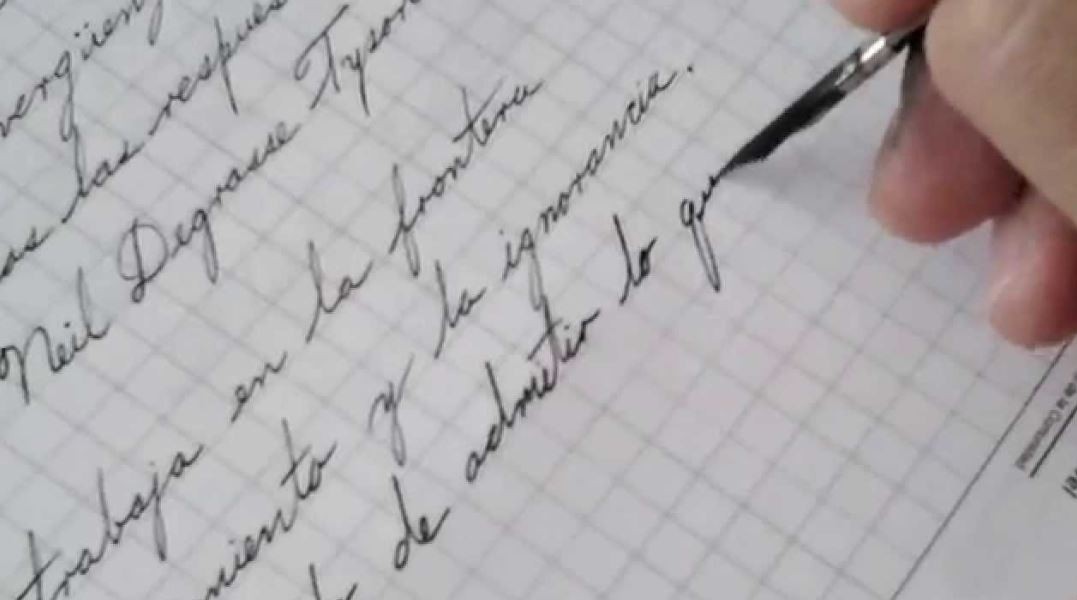 vergüenz
las respues
Neil Degrasse Tyson
trabaja en la frontera
miento y la ignorancia.
de admitir lo qu